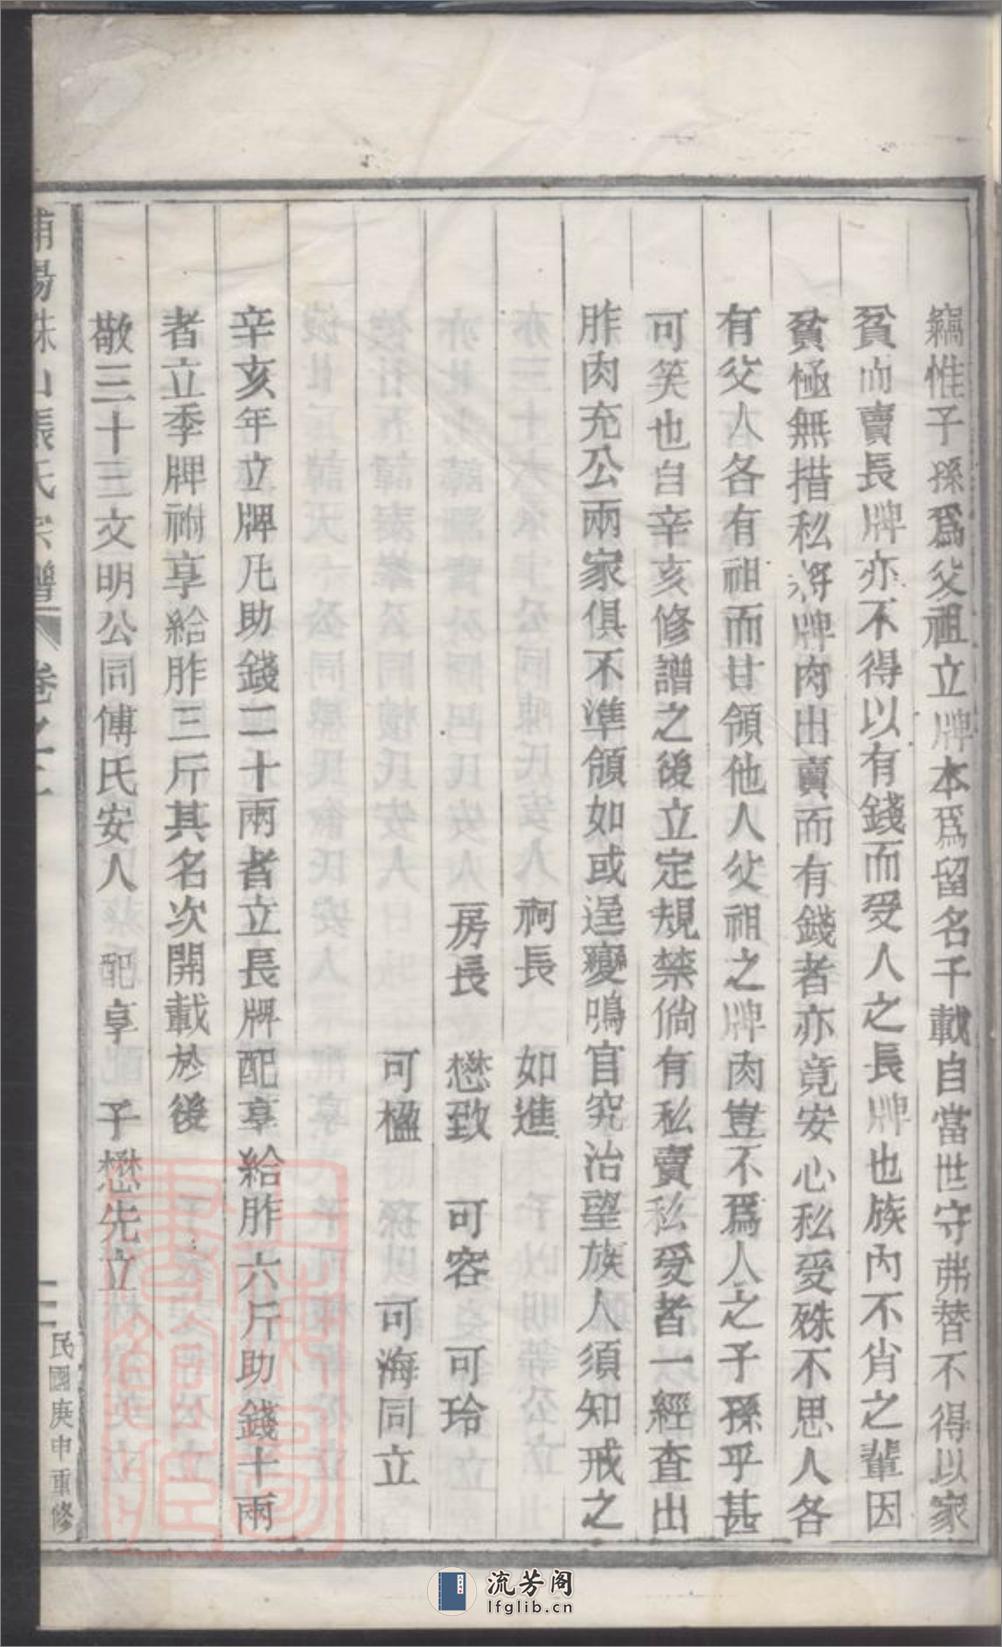 竊惟子孫爲父祖立牌本爲留名千載自當世守弗替不得以家
貧而賣長牌亦不得以有錢而受人之長牌也族內不肖之輩因
貧極無措私將牌肉出賣而有錢者亦竟安心私受殊不思人各
有父人各有祖而甘領他人父祖之牌肉豈不爲人之子孫乎甚
可笑也自辛亥修譜之後立定規禁倘有私賣私受者一經查出
胙肉充公兩家俱不準頒如或逞變鳴官究治望族人須知戒之
祠長 如進
房長 懋致 可容 可玲
可楹 可海同立
辛亥年立牌凡助錢二十兩者立長牌配享給胙六斤助錢十兩
者立季牌祔享給胙三斤其名次開載於後
敬三十三文明公同傅氏安人 配享 子懋先立
浦陽 山張氏宗譜 卷之二
民國庚申重修
流芳阁
lfglib.cn